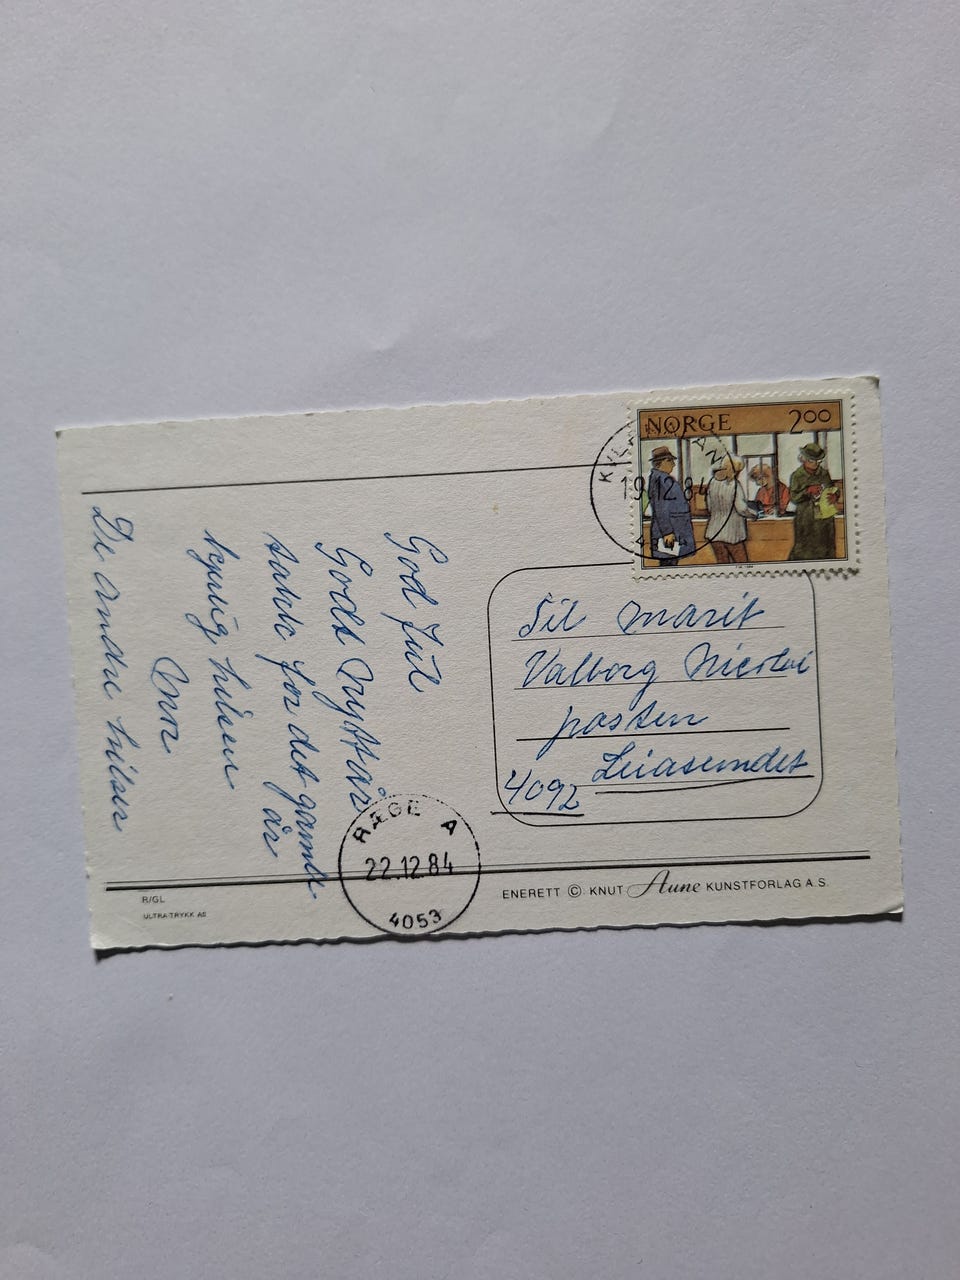 NORGE 2.00
19.12.84
God Jul
Godt Nyttår
takk for det gamle
år
hilsen
De andre hilser
Til Marit
Valborg Nicolai
posten
4092
RÆGE A
22.12.84
4053
R/GL
ULTRA-TRYKK AS
ENERETT ©: KNUT Aune KUNSTFORLAG A.S.